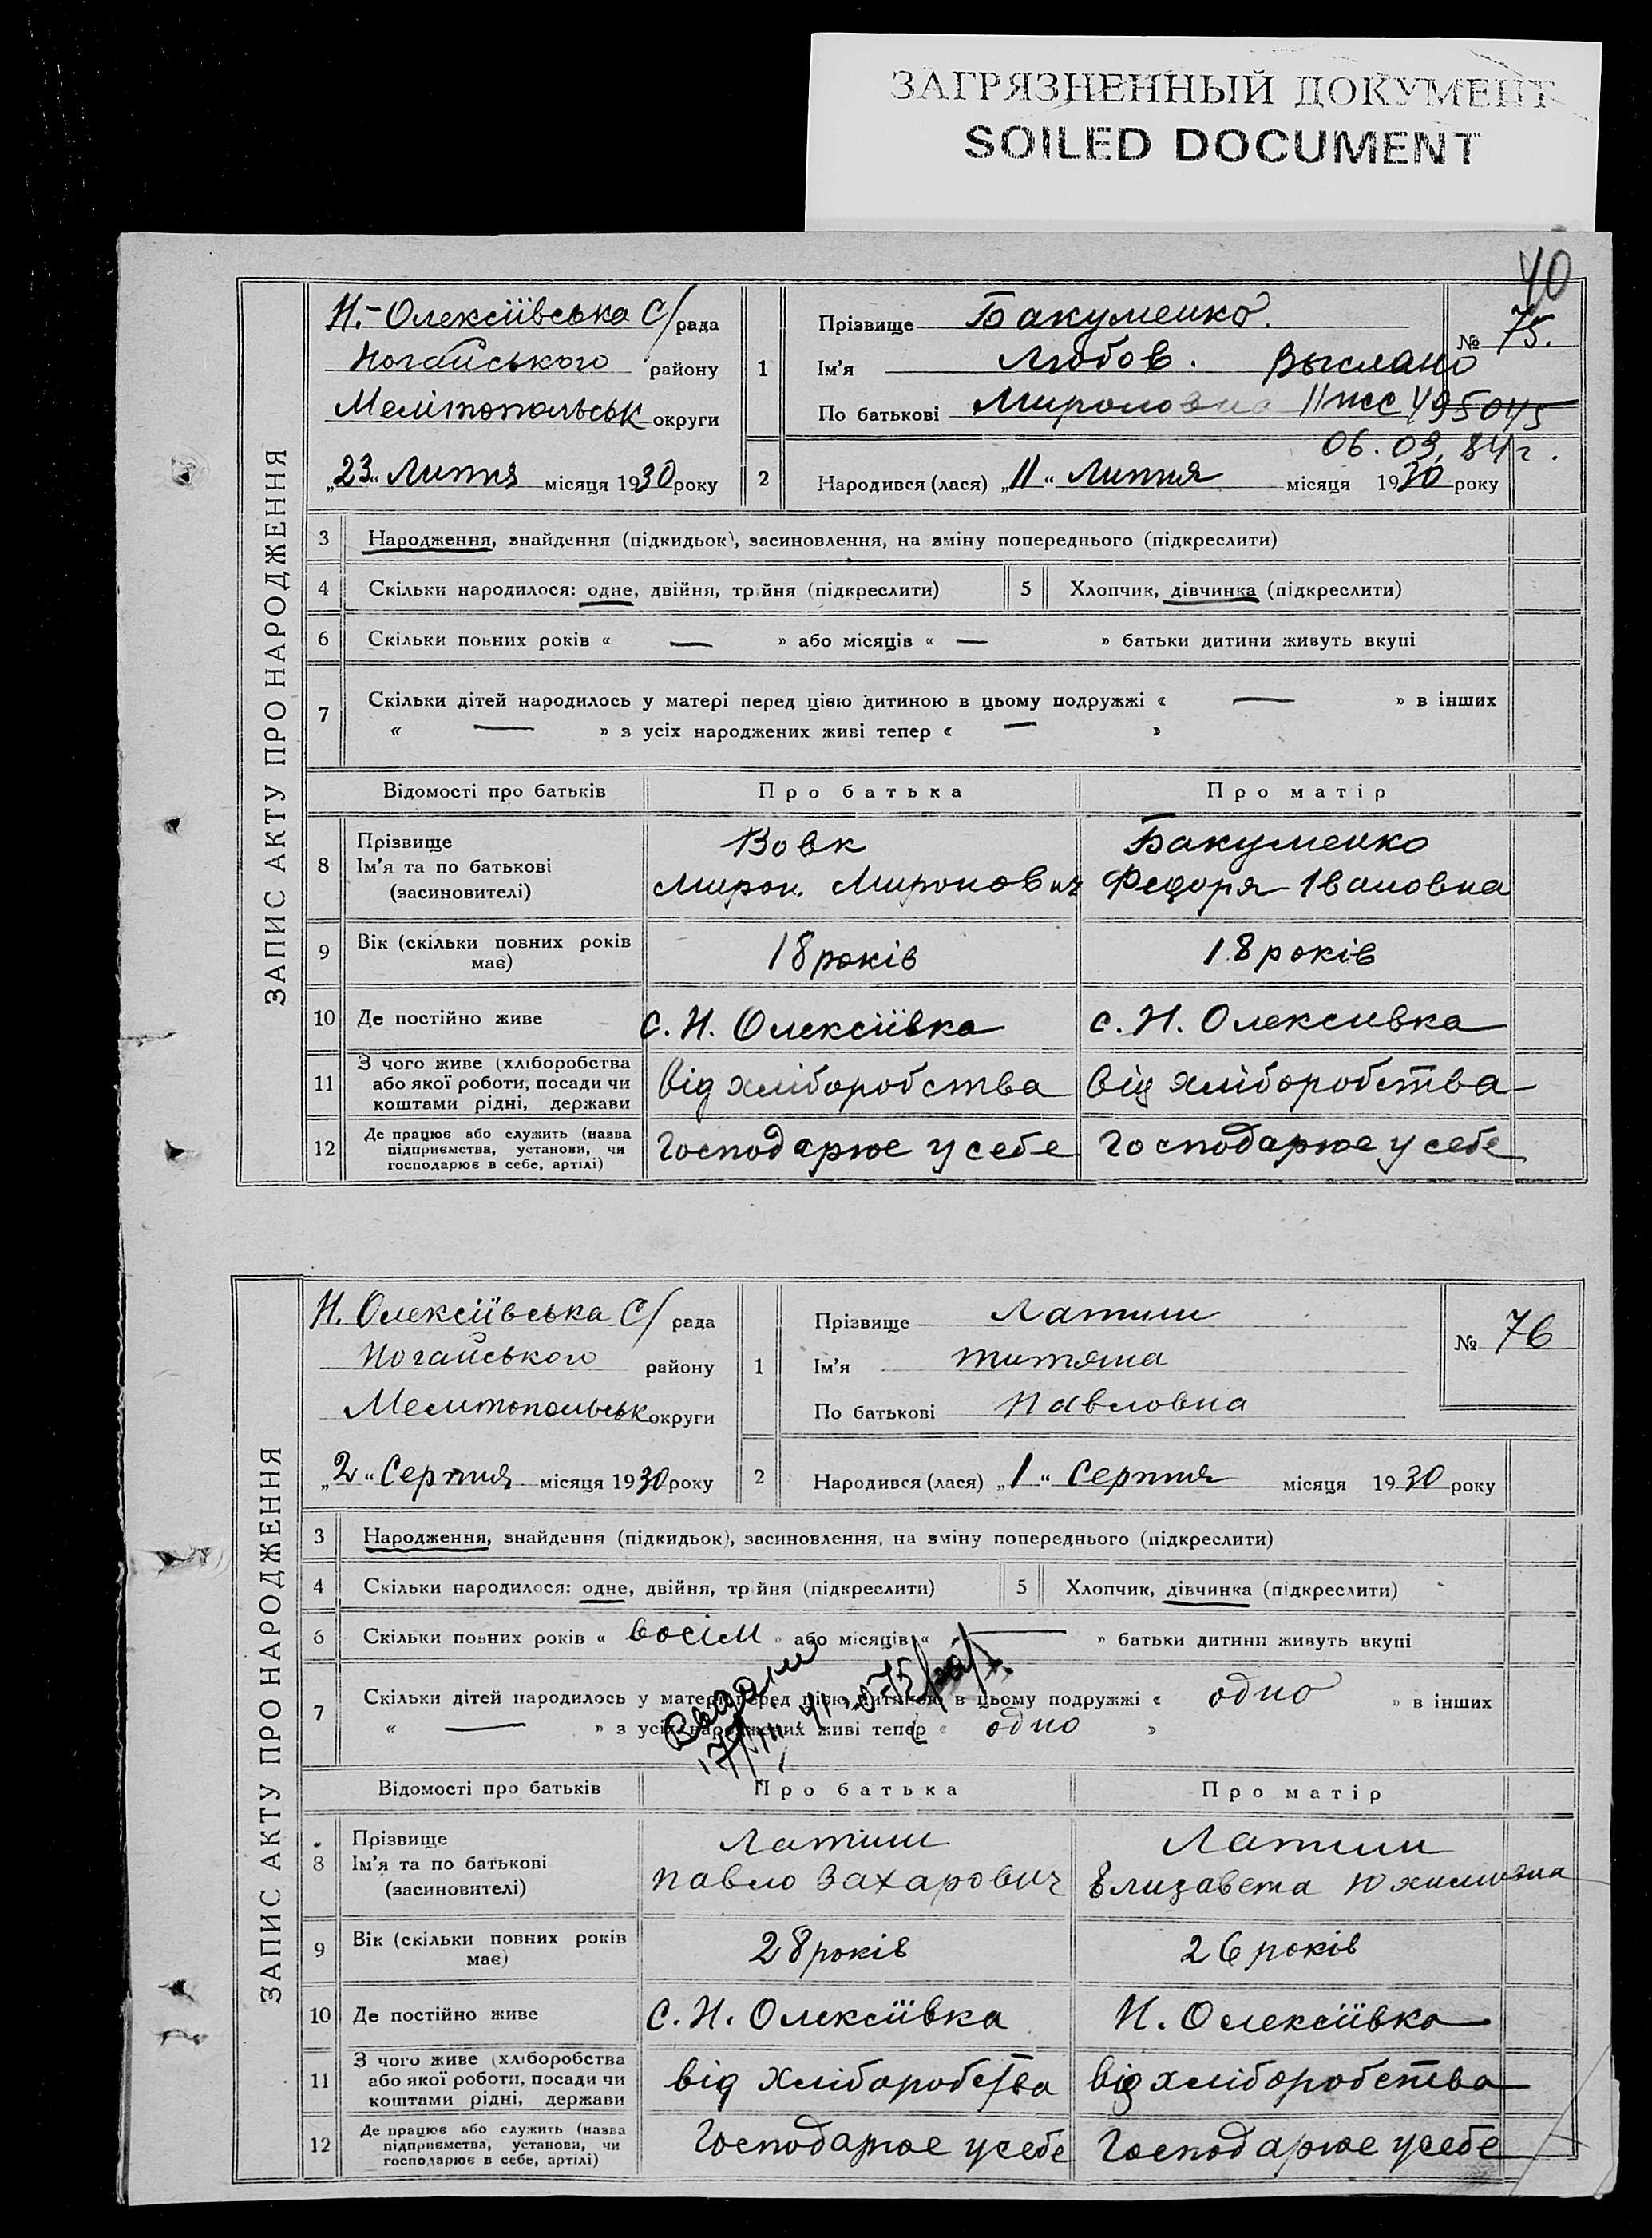 ЗАГРЯЗНЕННЫЙ ДОКУМЕНТ
SOILED DOCUMENT
40
ЗАПИС АКТУ ПРО НАРОДЖЕННЯ
Н.-Олексіївська С/рада
Ногайського району
Мелітопольськ округи
„23“ Липня місяця 1930 року
1 Прізвище Бакуменко.
№ 75.
Ім’я Любов. Выслано
По батькові Мироновна ІІжс 495045
06.03.84г.
2 Народився (лася) „11“ Липня місяця 1930 року
3 Народження, знайдення (підкидьок), засиновлення, на зміну попереднього (підкреслити)
4 Скільки народилося: одне, двійня, трійня (підкреслити) 5 Хлопчик, дівчинка (підкреслити)
6 Скільки повних років « — » або місяців « — » батьки дитини живуть вкупі
7 Скільки дітей народилось у матері перед цією дитиною в цьому подружжі « — » в інших
« — » з усіх народжених живі тепер « — »
Відомості про батьків Про батька Про матір
8 Прізвище Вовк Бакуменко
Ім’я та по батькові Мирон Миронович Федоря Івановна
(засиновителі)
9 Вік (скільки повних років має) 18 років 18 років
10 Де постійно живе с. Н. Олексіївка с. Н. Олексивка
11 З чого живе (хліборобства
або якої роботи, посади чи від хліборобства від хліборобства
коштами рідні, держави
12 Де працює або служить (назва
підприємства, установи, чи Господарює у себе Господарює у себе
господарює в себе, артілі)
ЗАПИС АКТУ ПРО НАРОДЖЕННЯ
Н. Олексіївська С/рада
Ногайського району
Мелитопольськ округи
„2“ Серпня місяця 1930 року
1 Прізвище Латиш
№ 76
Ім’я Титяна
По батькові Павловна
2 Народився (лася) „1“ Серпня місяця 1930 року
3 Народження, знайдення (підкидьок), засиновлення, на зміну попереднього (підкреслити)
4 Скільки народилося: одне, двійня, трійня (підкреслити) 5 Хлопчик, дівчинка (підкреслити)
6 Скільки повних років « восім » або місяців « — » батьки дитини живуть вкупі
7 Скільки дітей народилось у матері перед цією дитиною в цьому подружжі « одно » в інших
« — » з усіх народжених живі тепер « одно »
Відомості про батьків Про батька Про матір
8 Прізвище Латиш Латиш
Ім’я та по батькові Павло Захарович Елизавета Юхимивна
(засиновителі)
9 Вік (скільки повних років має) 28 років 26 років
10 Де постійно живе С. Н. Олексіївка Н. Олексіївка
11 З чого живе (хліборобства
або якої роботи, посади чи від хліборобства від хліборобства
коштами рідні, держави
12 Де працює або служить (назва
підприємства, установи, чи Господарює у себе Господарює у себе
господарює в себе, артілі)